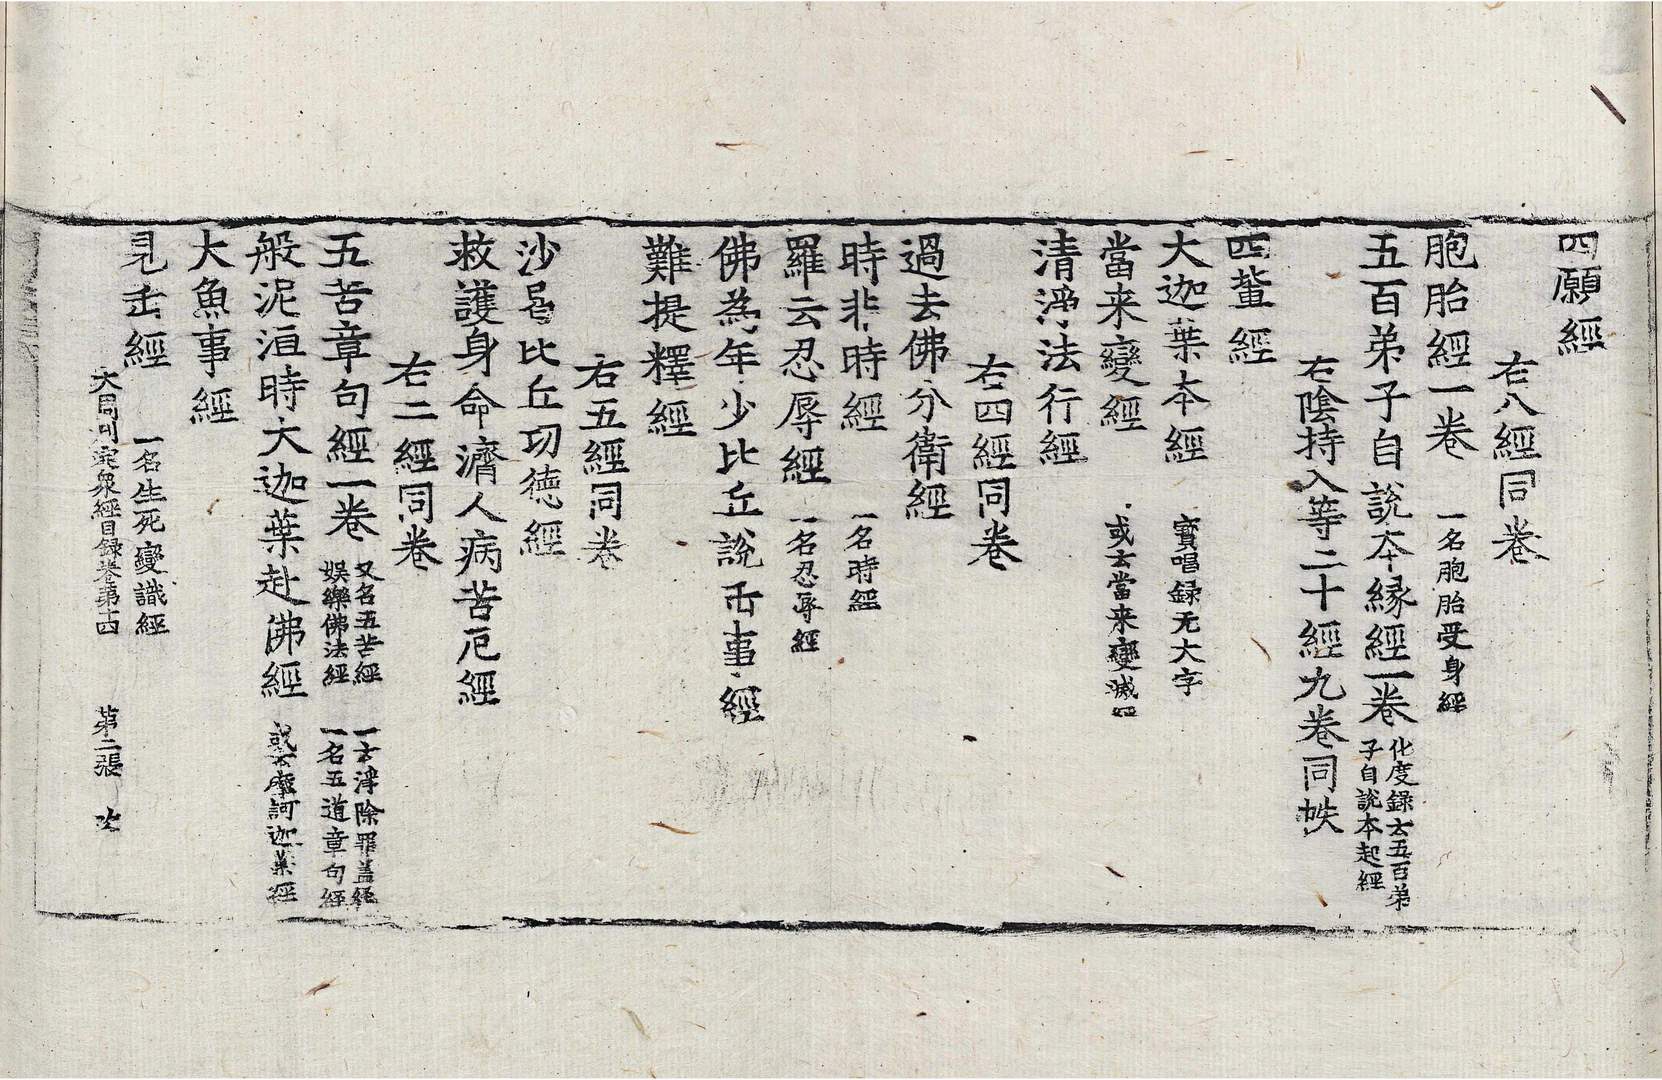 四願經
右八經同卷
胞胎經一卷 一名胞胎受身經
五百弟子自說本緣經一卷 化度錄云五百弟子自說本起經
右陰持入等二十經九卷同帙
四輩經
大迦葉本經 寶唱録无大字
當来變經 或云當来變滅經
清淨法行經
右四經同卷
過去佛分衛經
時非時經 一名時經
羅云忍辱經 一名忍辱經
佛為年少比丘說正事經
難提釋經
右五經同卷
沙曷比丘功德經
救護身命濟人病苦厄經
右二經同卷
五苦章句經一卷 又名五苦經 一云淨除罪盖娛樂佛法經 一名五道章句經
般泥洹時大迦葉赴佛經 或云摩訶迦葉經
大魚事經
見正經 一名生死變識經
大周刊定衆經目録卷第十四 第二張